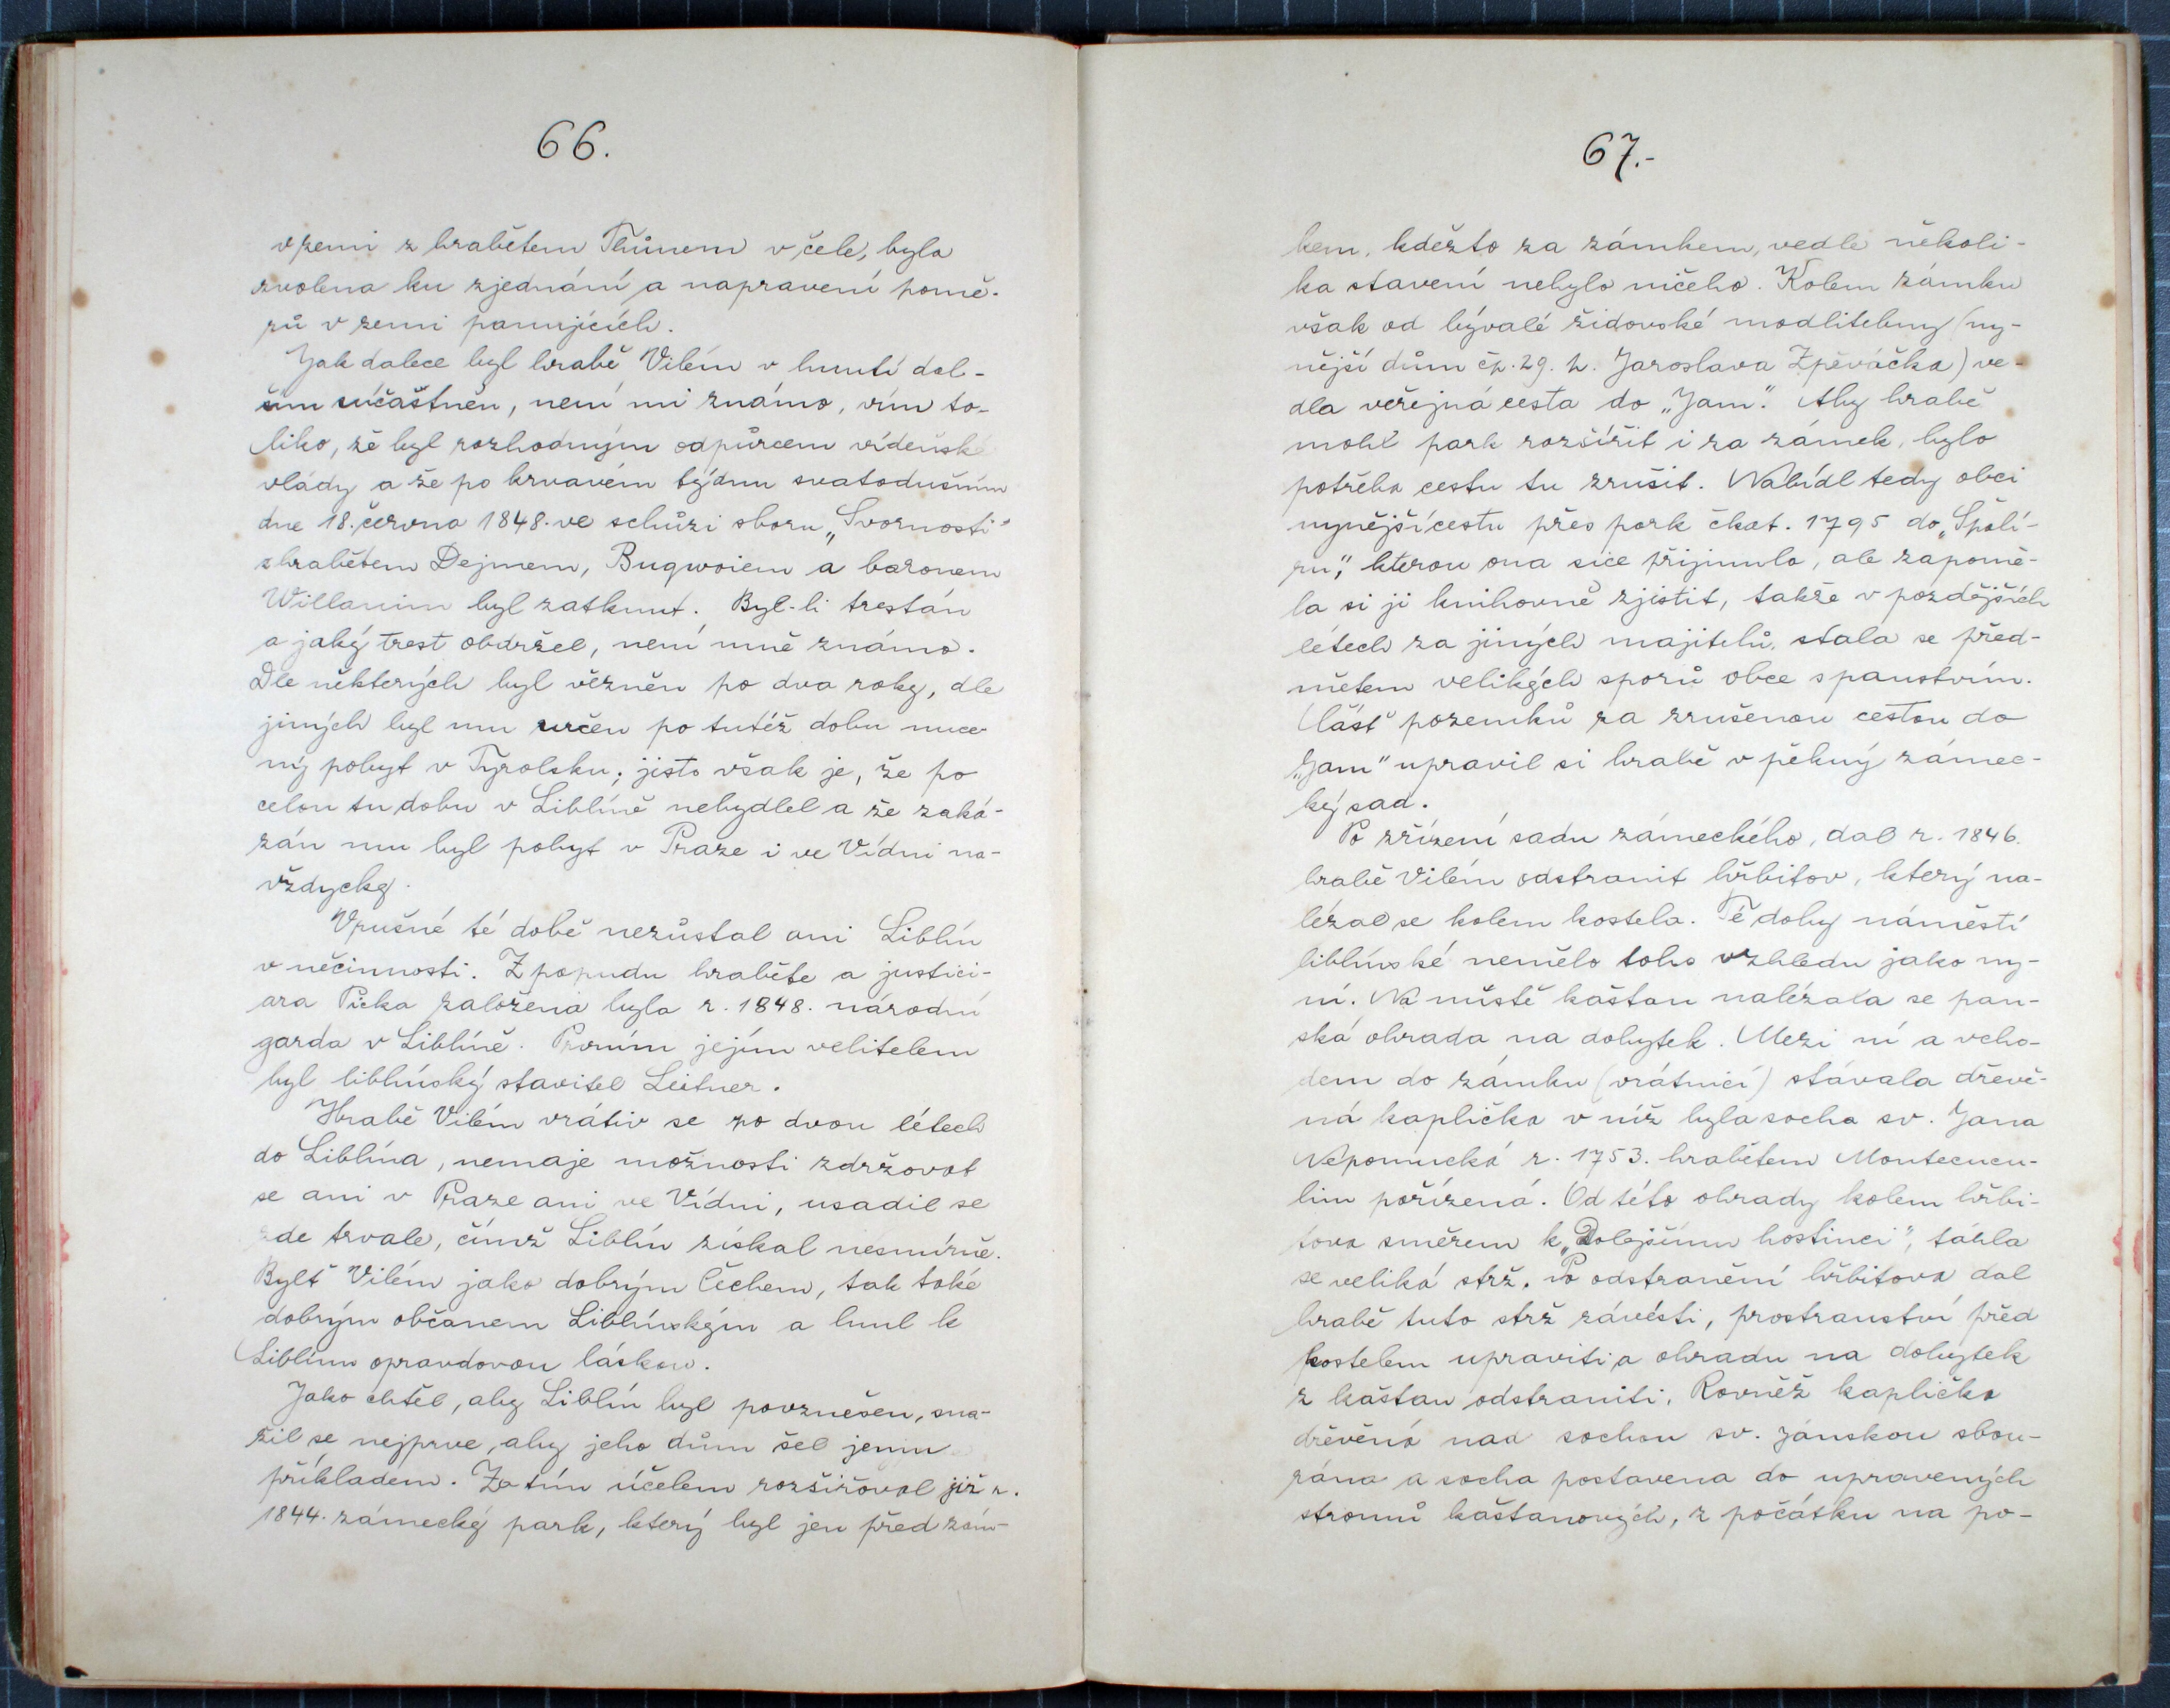 66.
v zemi z hrabětem Thůnem v čele, byla
zvolena ku zjednání a napravení pomě-
rů v zemi panujících.
Jak dalece byl hrabě Vilém v hnutí dal-
ším súčástněn, není mi známo, vím to-
liko, že byl rozhodným odpůrcem vídeňské
vlády a že po krvavém týdnu svatodušním
dne 18. června 1848. ve schůzi sboru „Svornosti"
s hrabětem Dejmem, Buqwoiem a baronem
Willanim byl zatknut. Byl-li trestán
a jaký trest obdržel, není mně známo.
Dle některých byl vězněn po dva roky, dle
jiných byl mu určen po tutéž dobu nuce-
ný pobyt v Tyrolsku; jisto však je, že po
celou tu dobu v Liblíně nebydlel a že zaká-
zán mu byl pobyt v Praze i ve Vídni na-
vždycky.
V rušné té době nezůstal ani Liblín
v nečinnosti. Z popudu hraběte a justici-
ara Picka založena byla r. 1848. národní
garda v Liblíně. Prvním jejím velitelem
byl liblínský stavitel Leitner.
Hrabě Vilém vrátiv se po dvou létech
do Liblína, nemaje možnosti zdržovat
se ani v Praze ani ve Vídni, usadil se
zde trvale, čímž Liblín získal nesmírně.
Bylť Vilém jako dobrým Čechem, tak také
dobrým občanem Liblínským a lnul k
Liblínu opravdovou láskou.
Jako chtěl, aby Liblín byl povznešen, sna-
žil se nejprve, aby jeho dům šel jemu
příkladem. Za tím účelem rozšiřoval již r.
1844. zámecký park, který byl jen před zám-
67.-
kem, kdežto za zámkem, vedle několi-
ka stavení nebylo ničeho. Kolem zámku
však od bývalé židovské modlitebny (ny-
nější dům čp. 29. h. Jaroslava Zpěváčka) ve-
dla veřejná cesta do „Jam". Aby hrabě
mohl park rozšířit i za zámek, bylo
potřeba cestu tu zrušit. Nabídl tedy obci
nynější cestu přes park čkat. 1795 do „Špalí-
ru", kterou ona sice přijmula, ale zapomě-
la si ji knihovně zjistit, takže v pozdějších
létech za jiných majitelů, stala se před-
mětem velikých sporů obce s panstvím.
Část pozemků za zrušenou cestou do
„Jam" upravil si hrabě v pěkný zámec-
ký sad.
Po zřízení sadu zámeckého, dal r. 1846.
hrabě Vilém odstranit hřbitov, který na-
lézal se kolem kostela. Té doby náměstí
liblínské nemělo toho vzhledu jako ny-
ní. Na místě kaštan nalézala se pan-
ská ohrada na dobytek. Mezi ní a vcho-
dem do zámku (vrátnicí) stávala dřevě-
ná kaplička v níž byla socha sv. Jana
Nepomucká r. 1753. hrabětem Montecucu-
lim pořízená. Od této ohrady kolem hřbi-
tova směrem k „Dolejšímu hostinci", táhla
se veliká strž. Po odstranění hřbitova dal
hrabě tuto strž závésti, prostranství před
kostelem upraviti a ohradu na dobytek
z kaštan odstraniti. Rovněž kaplička
dřevěná nad sochou sv. jánskou sbou-
rána a socha postavena do upravených
stromů kaštanových, z počátku na po-